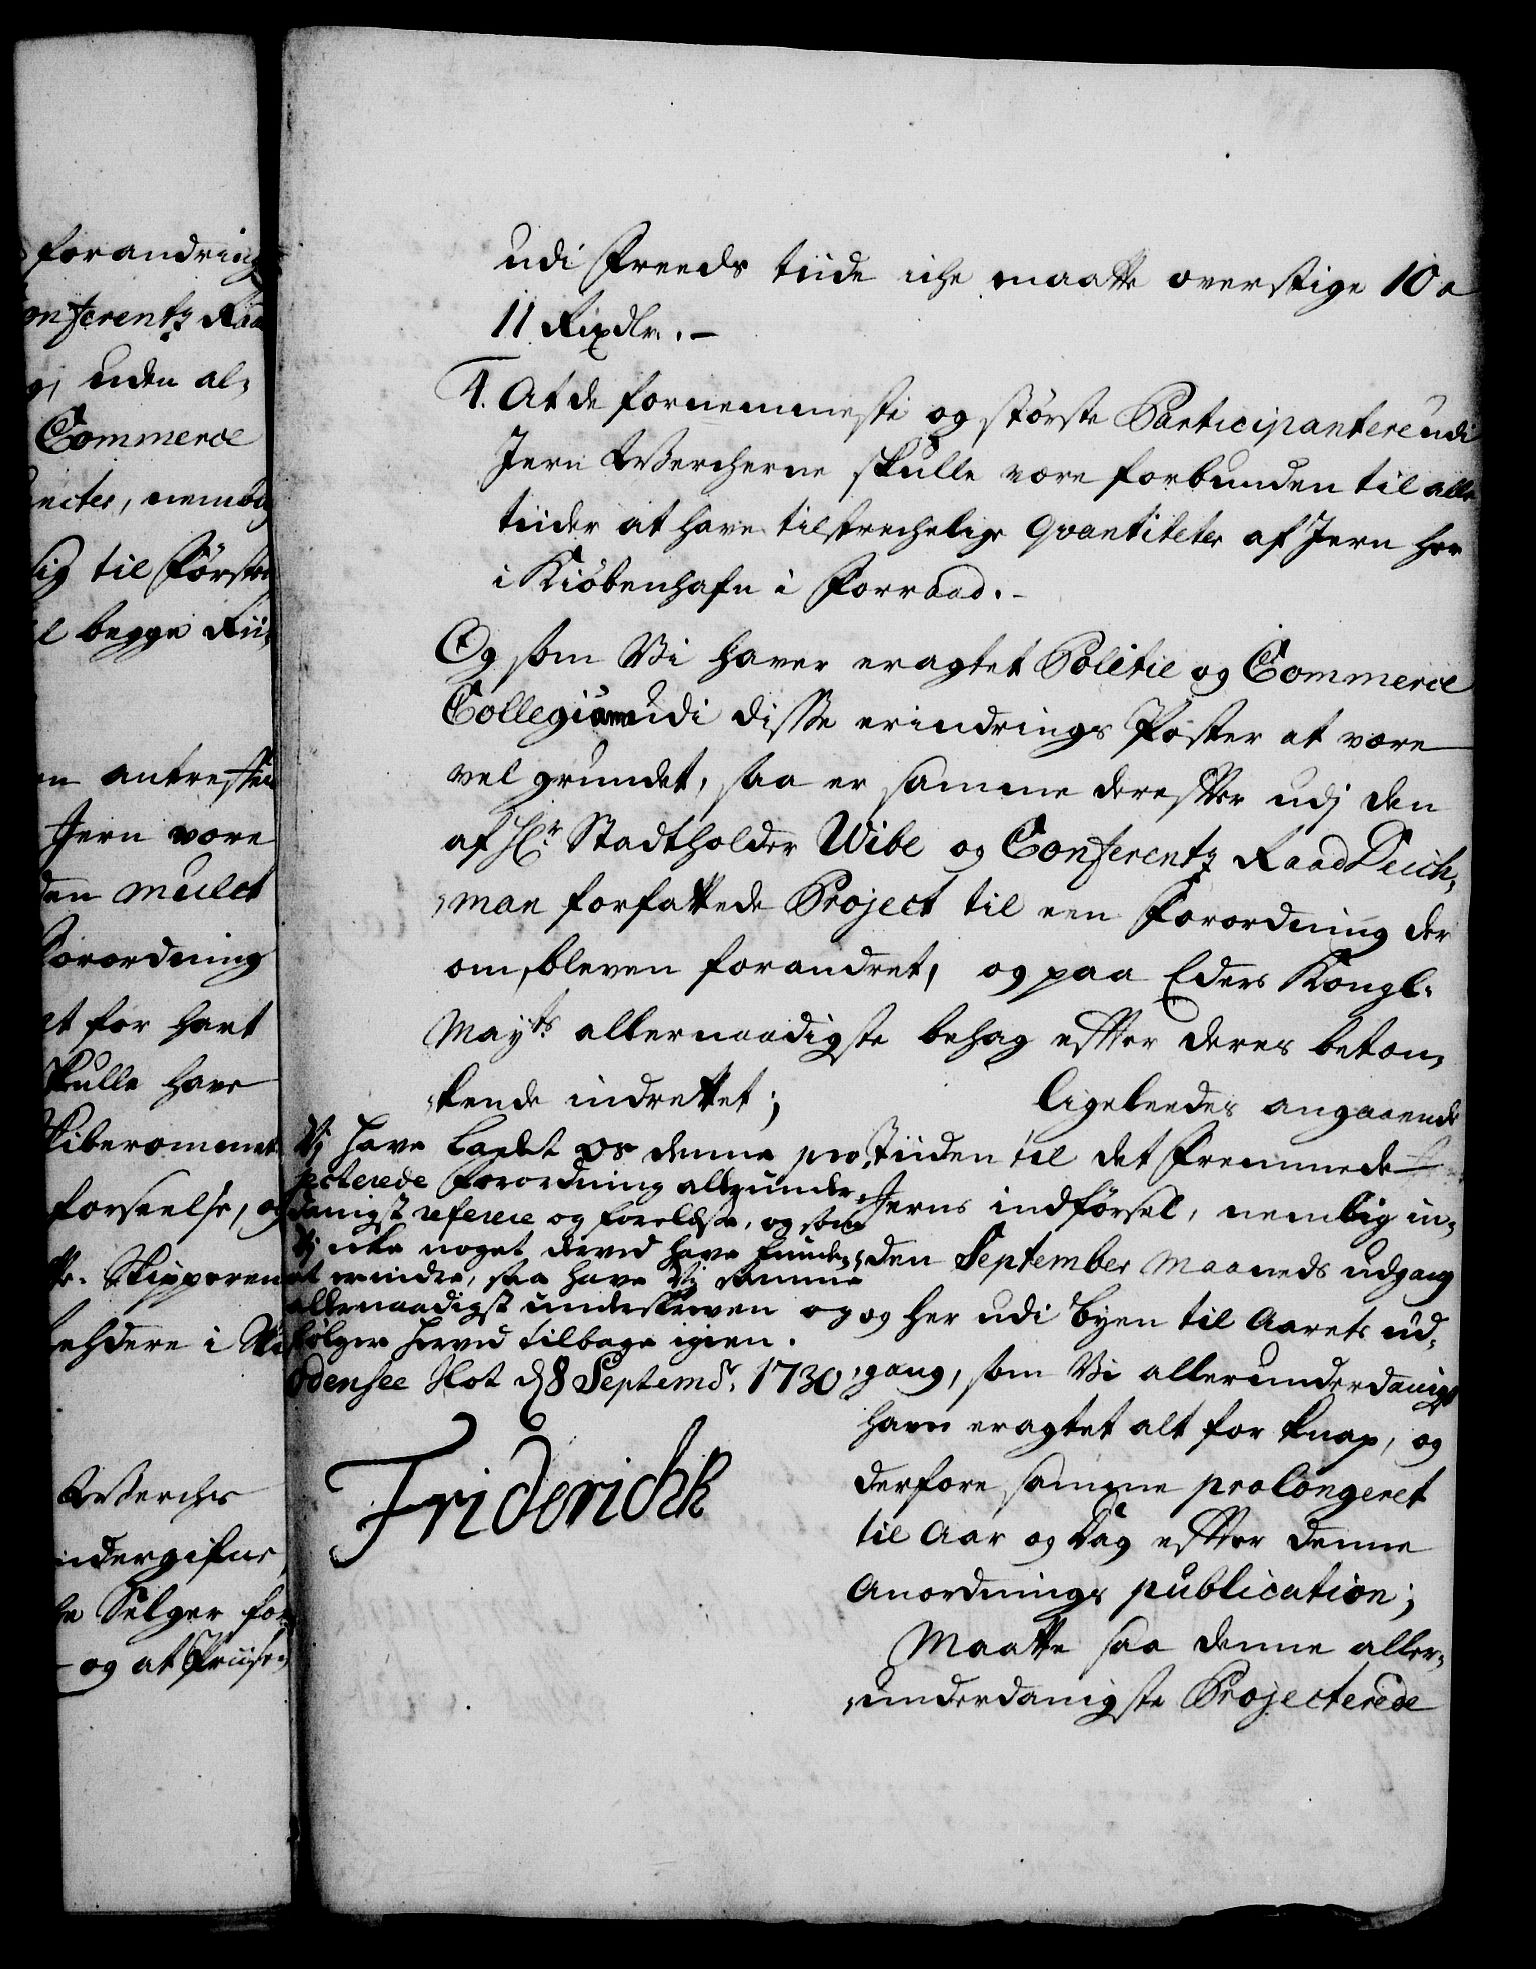 forandring
onferentz Raa
gj uden al-
Commerce
uncter, nemblig
sig til Første
il begge Rii-
en antreffen
Jern være
den mulct
Forordning
et for hart
skulle have
Skiberommet
forseelse, og
Skipperen
behdere i Ski
Wercher
undergifne
he Selger for-
og at Priisen
udi Freeds tiide iche maatte overstige 10 a
11 Rixdlr. -
4. At de fornemmeste og største Participantere udi
Jern Wercherne skulle være forbunden til alle
tiider at have tilstrechelige Qvantiteter af Jern her
i Kiöbenhafn i Forraad. -
Og som Vi haver eragtet Politie og Commerce
Collegium udi disse erindrings Poster at være
vel grundet, saa er samme derefter udj den
af Hr. Stadtholder Wibe og Conferentz Raad Deich-
man forfattede Project til een Forordning der
om, bleven forandret, og paa Eders Kongl.
Mayts allernaadigste behag effter deres betæn-
kende indrettet;
ligeleedes angaaende
Tiiden til det Fremmede
Jerns indförsel, nemblig in-
den September Maaneds udgang
og her udi byen til Aarets ud-
gang, som Vi allerunderdanigst
have eragtet alt for knap, og
derfore samme prolongeret
til Aar og Dag effter denne
Anordnings publication;
Maatte saa denne aller-
underdanigste Projecterede
Vj have ladet os denne pro-
jecterede Forordning allerunder-
danigst referere og forelæse, og som
Vj icke noget derved have funde-
et erindre, saa have Vj samme
allernaadigst underskreven og
følger herved tilbage igien.
Odensee Slot d 8 Septembr. 1730
Friderichk